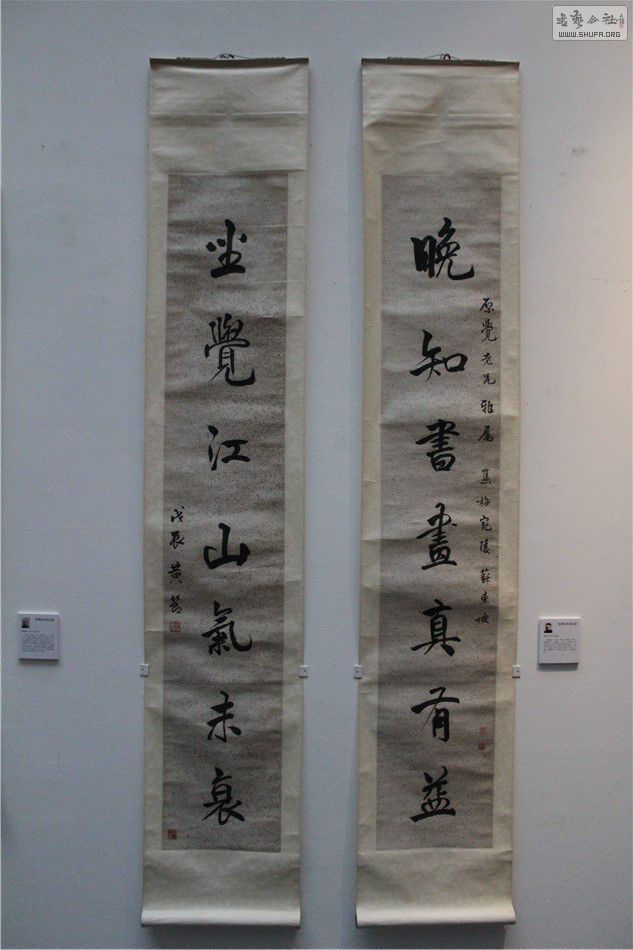 書藝公社
WWW.SHUFA.ORG
晚知書畫真有益
原覺老兄雅屬 集梅宛陵蘇東坡
坐覺江山氣未衰
戊辰 黃節